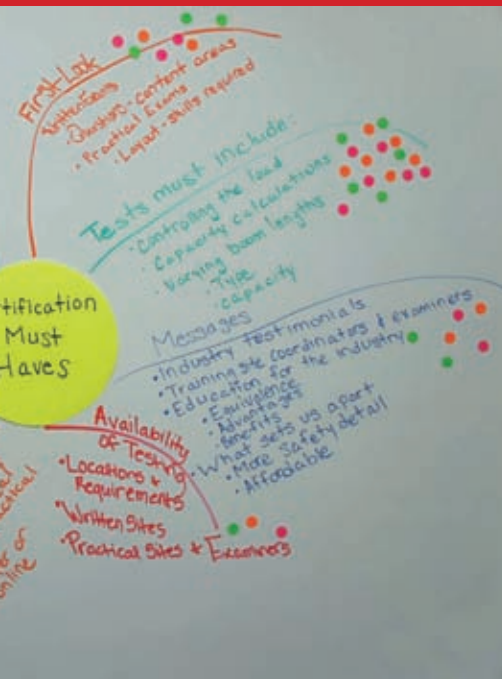 First-Look
Written Exams
• Questions - content areas
• Practical Exams
• Layout - skills required
Tests must include:
• Controlling the load
• Capacity calculations
• Varying boom lengths
• Type
• capacity
tification
Must
Haves
Messages
• Industry testimonials
• Training site coordinators & examiners
• Education for the industry
• Equivalence
• Advantages
• Benefits
• What sets us apart
• More Safety detail
• Affordable
Availability
of Testing
• Locations &
Requirements
• Written Sites
• Practical Sites & Examiners
actical
er of
online